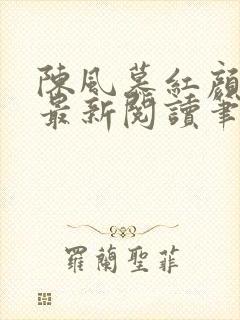 陳風慕紅顔
最新閱讀筆
羅蘭聖菲